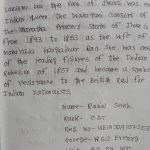 Lakshmi bai the Rani of Jhansi was an
Indian Queen. She Maharani consort of
the Maratha Princely State of Jhansi
from 1843 to 1853 as the wife of
Maharaja Gangadhar Rao. She was one
of the leading figures of the Indian
rebellion of 1857 and became a symbol
of resistance to the British rej for
Indian nationalists.
Name- Rahul Sekh,
Reg. No-
College-